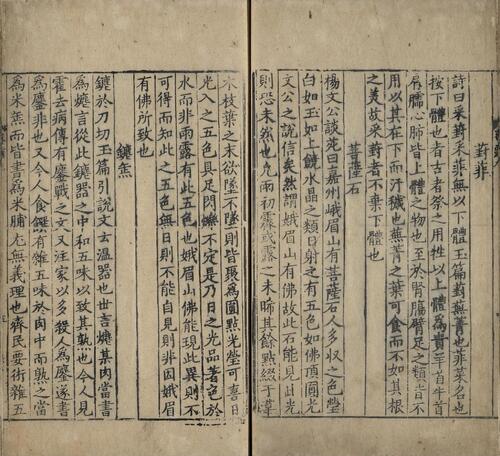 葑菲
詩曰采葑采菲無以下體玉篇葑蕪菁也菲菜名也
按下體也者古者祭之用牲以上體為貴至首牛首
心肺皆上體之物也至於腎腸臂足之類皆不
用以其在下而汗穢也蕪菁之葉可食而不如其根
之美故采葑者不棄下體也
菩薩石
楊文公談苑曰嘉州峨眉山有菩薩石人多収之色瑩
白如玉如上饒水晶之類日射之有五色如佛頂圓光
文公之說信矣然謂峨眉山有佛故此石能見此光
則恐未然也凡雨初霽或露之未晞其餘點綴于草
木枝葉之末欲墜不墜則皆聚為圓點光瑩可喜日
光入之五色具足閃爍不定是乃日之光品著色於
水而非雨露有此五色也峨眉山佛能現此異則不
可得而知此之五色無日則不能自見則非因峨眉
有佛所致也
鏕
鏕於刀切玉篇引說文云溫器也世言某肉當書
為鏕言從此鏕器之中和五味以致其熟也今人見
霍去病傳有鏖戰之文又注家以多殺人為鏖遂書
為鏖非也又今人食饌有雜五味於肉中而熟之當
為米而皆書為米脯尤無義理也齊民要術雜五